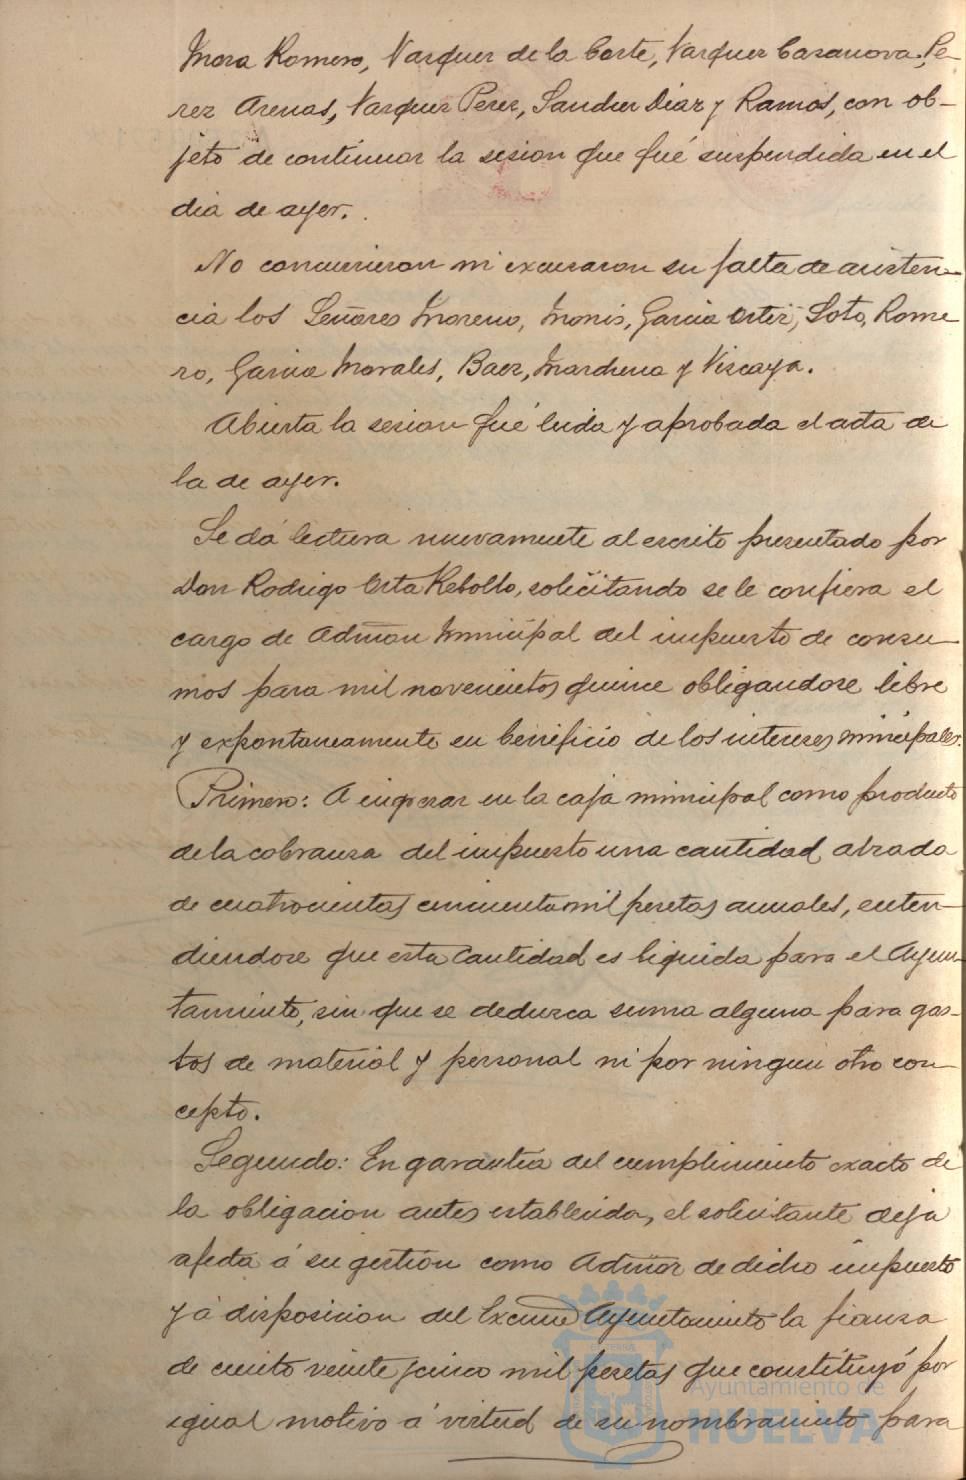 Mora Romero, Vazquez de la Corte, Vazquez Casanova, Pe-
rez Arenas, Vazquez Perez, Sanchez Diaz y Ramos, con ob-
jeto de continuar la sesion que fué suspendida en el
dia de ayer.
No concurrieron ni excusaron su falta de asisten-
cia los Señores Moreno, Monis, Garcia Ortiz, Soto, Rome
ro, Garcia Morales, Baez, Marchena y Vizcaya.
Abierta la sesion fué leida y aprobada el acta de
la de ayer.
Se dá lectura nuevamente al escrito presentado por
Don Rodrigo Orta Rebollo, solicitando se le confiera el
cargo de Admōn Municipal del impuesto de consu-
mos para mil novecientos quince obligandose libre
y expontaneamente en beneficio de los intereses municipales.
Primero: A ingresar en la caja municipal como producto
de la cobranza del impuesto una cantidad alzada
de cuatrocientas cincuenta mil pesetas anuales, enten-
diendose que esta cantidad es liquida para el Ayun-
tamiento, sin que se deduzca suma alguna para gas-
tos de material y personal ni por ningun otro con-
cepto.
Segundo: En garantia del cumplimiento exacto de
la obligacion antes establecida, el solicitante deja
afecta á su gestión como Admōr de dicho impuesto
y á disposicion del Excmo Ayuntamiento la fianza
de ciento veinte y cinco mil pesetas que constituyó por
igual motivo á virtud de su nombramiento para
Ayuntamiento de
HUELVA